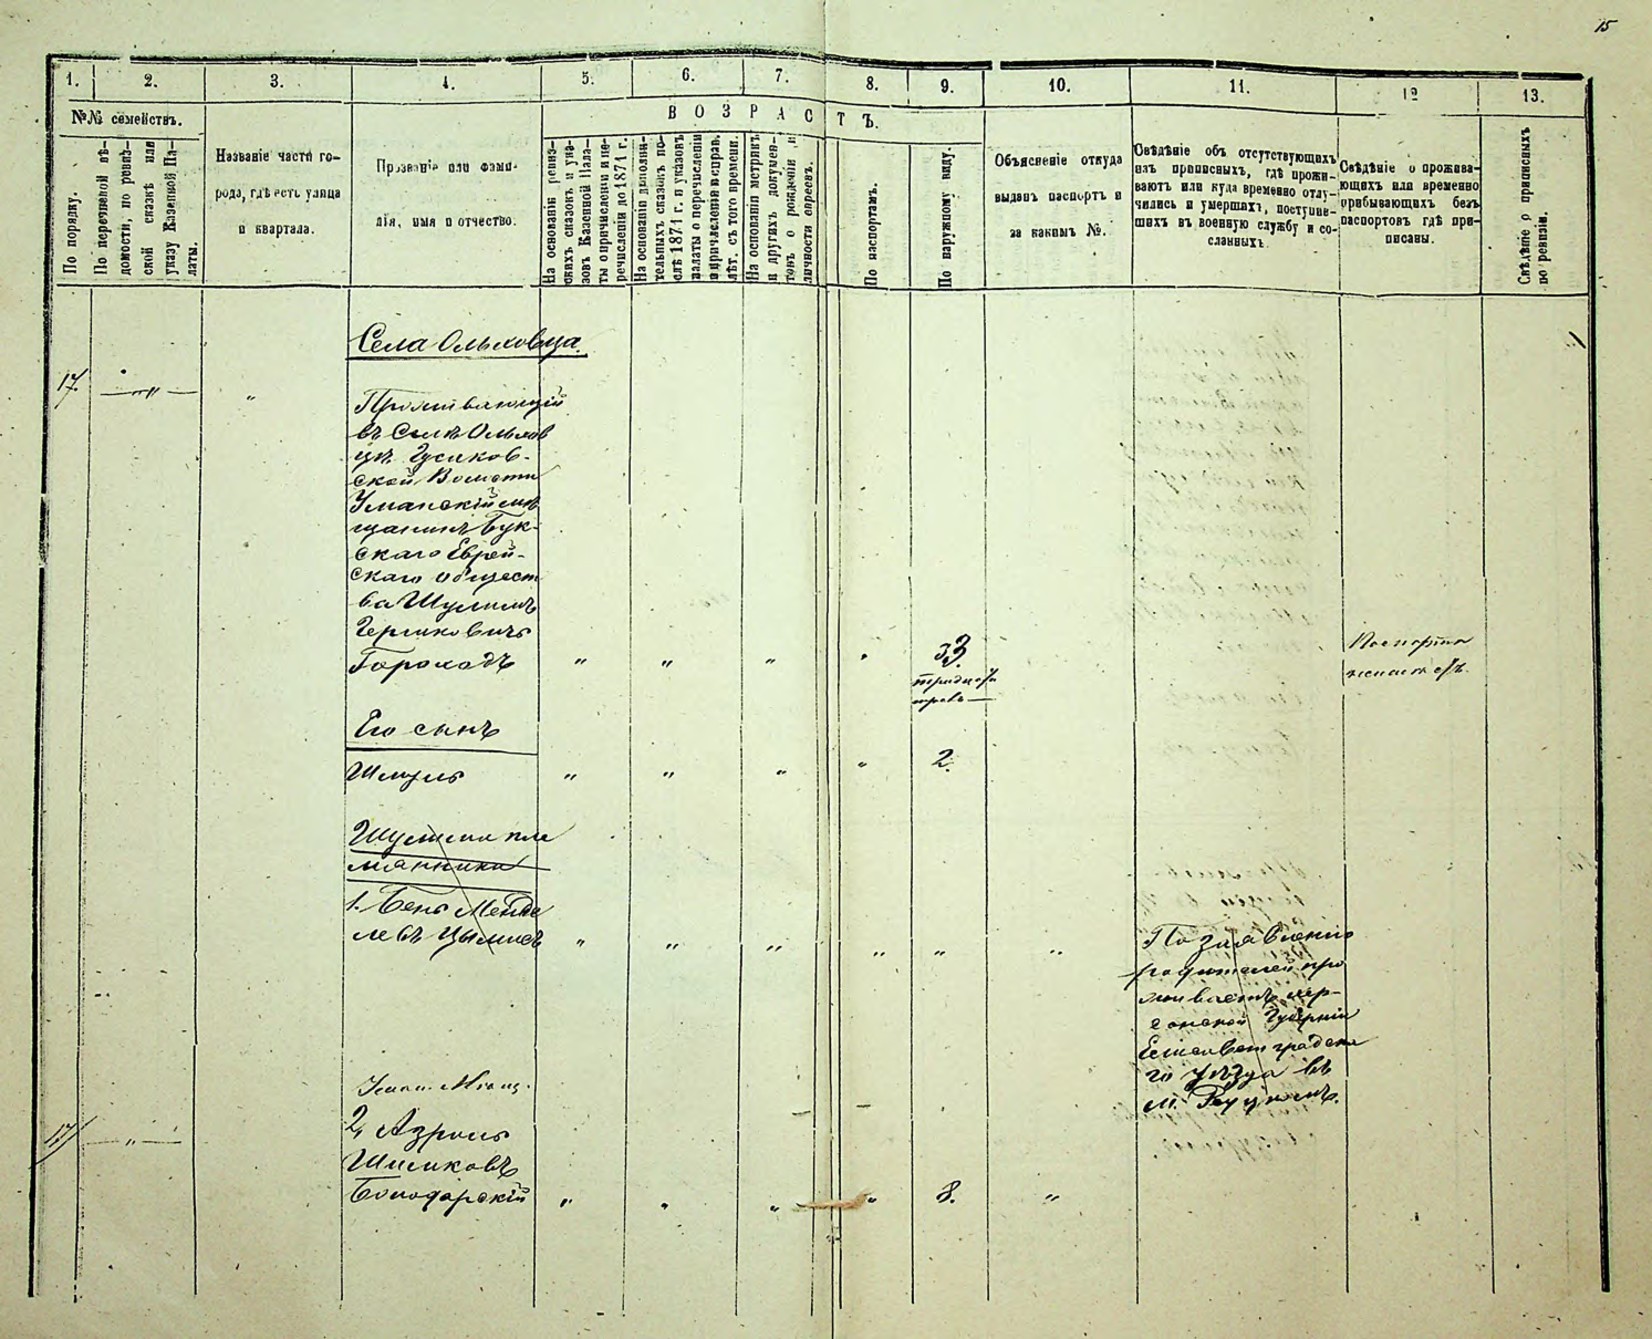 15
1.
2.
3.
4.
5.
6.
7.
8.
9.
10.
11.
12
13.
№№ семействъ.
ВОЗРАСТЪ.
По порядку.
По перечневой вѣ-
домости, по ревиз-
ской сказкѣ или
указу Казенной Па-
латы.
Названіе части го-
рода, гдѣ есть улица
и квартала.
Прозваніе или фами-
лія, имя и отчество.
На основаніи ревиз-
скихъ сказокъ и ука-
зовъ Казенной Пала-
ты о причисленіи и пе-
речисленіи до 1871 г.
На основаніи дополни-
тельныхъ сказокъ по-
слѣ 1871 г. и указовъ
палаты о перечисленіи
и причисленіи и справ.
лѣт. съ того времени.
На основаніи метрикъ
и другихъ докумен-
товъ о рожденіи и
личности евреевъ.
По паспортамъ.
По наружному виду.
Объясненіе откуда
выданъ паспортъ и
за какимъ №.
Свѣдѣніе объ отсутствующихъ
изъ приписныхъ, гдѣ прожи-
ваютъ или куда временно отлу-
чились и умершихъ, поступив-
шихъ въ военную службу и со-
сланныхъ.
Свѣдѣніе о прожива-
ющихъ или временно
прибывающихъ безъ
паспортовъ гдѣ при-
писаны.
Свѣдѣніе о приписныхъ
по ревизіи.
Села Ольховца.
17. — „ — „
Проживающій
въ Селѣ Ольхов
цѣ Гусаков-
ской Волости
Уманскій мѣ
щанинъ Бук-
скаго Еврей-
скаго общест
ва Шулимъ
Гершковичъ
Гороходъ „ „ „ „ 33.
тридцать
три —
Паспорта
не имѣетъ.
Его сынъ
Шмуль „ „ „ „ 2.
Шулима пле
мянники
1. Бень Менде
левъ „ „ „ „ „ „
По заявленію
родителей про
живаетъ Хер-
сонской Губерніи
Елисаветградска
го уѣзда въ
м.
17/ — „ —
2, Азриль
Шмиковъ
„ „ „ „ 8. „